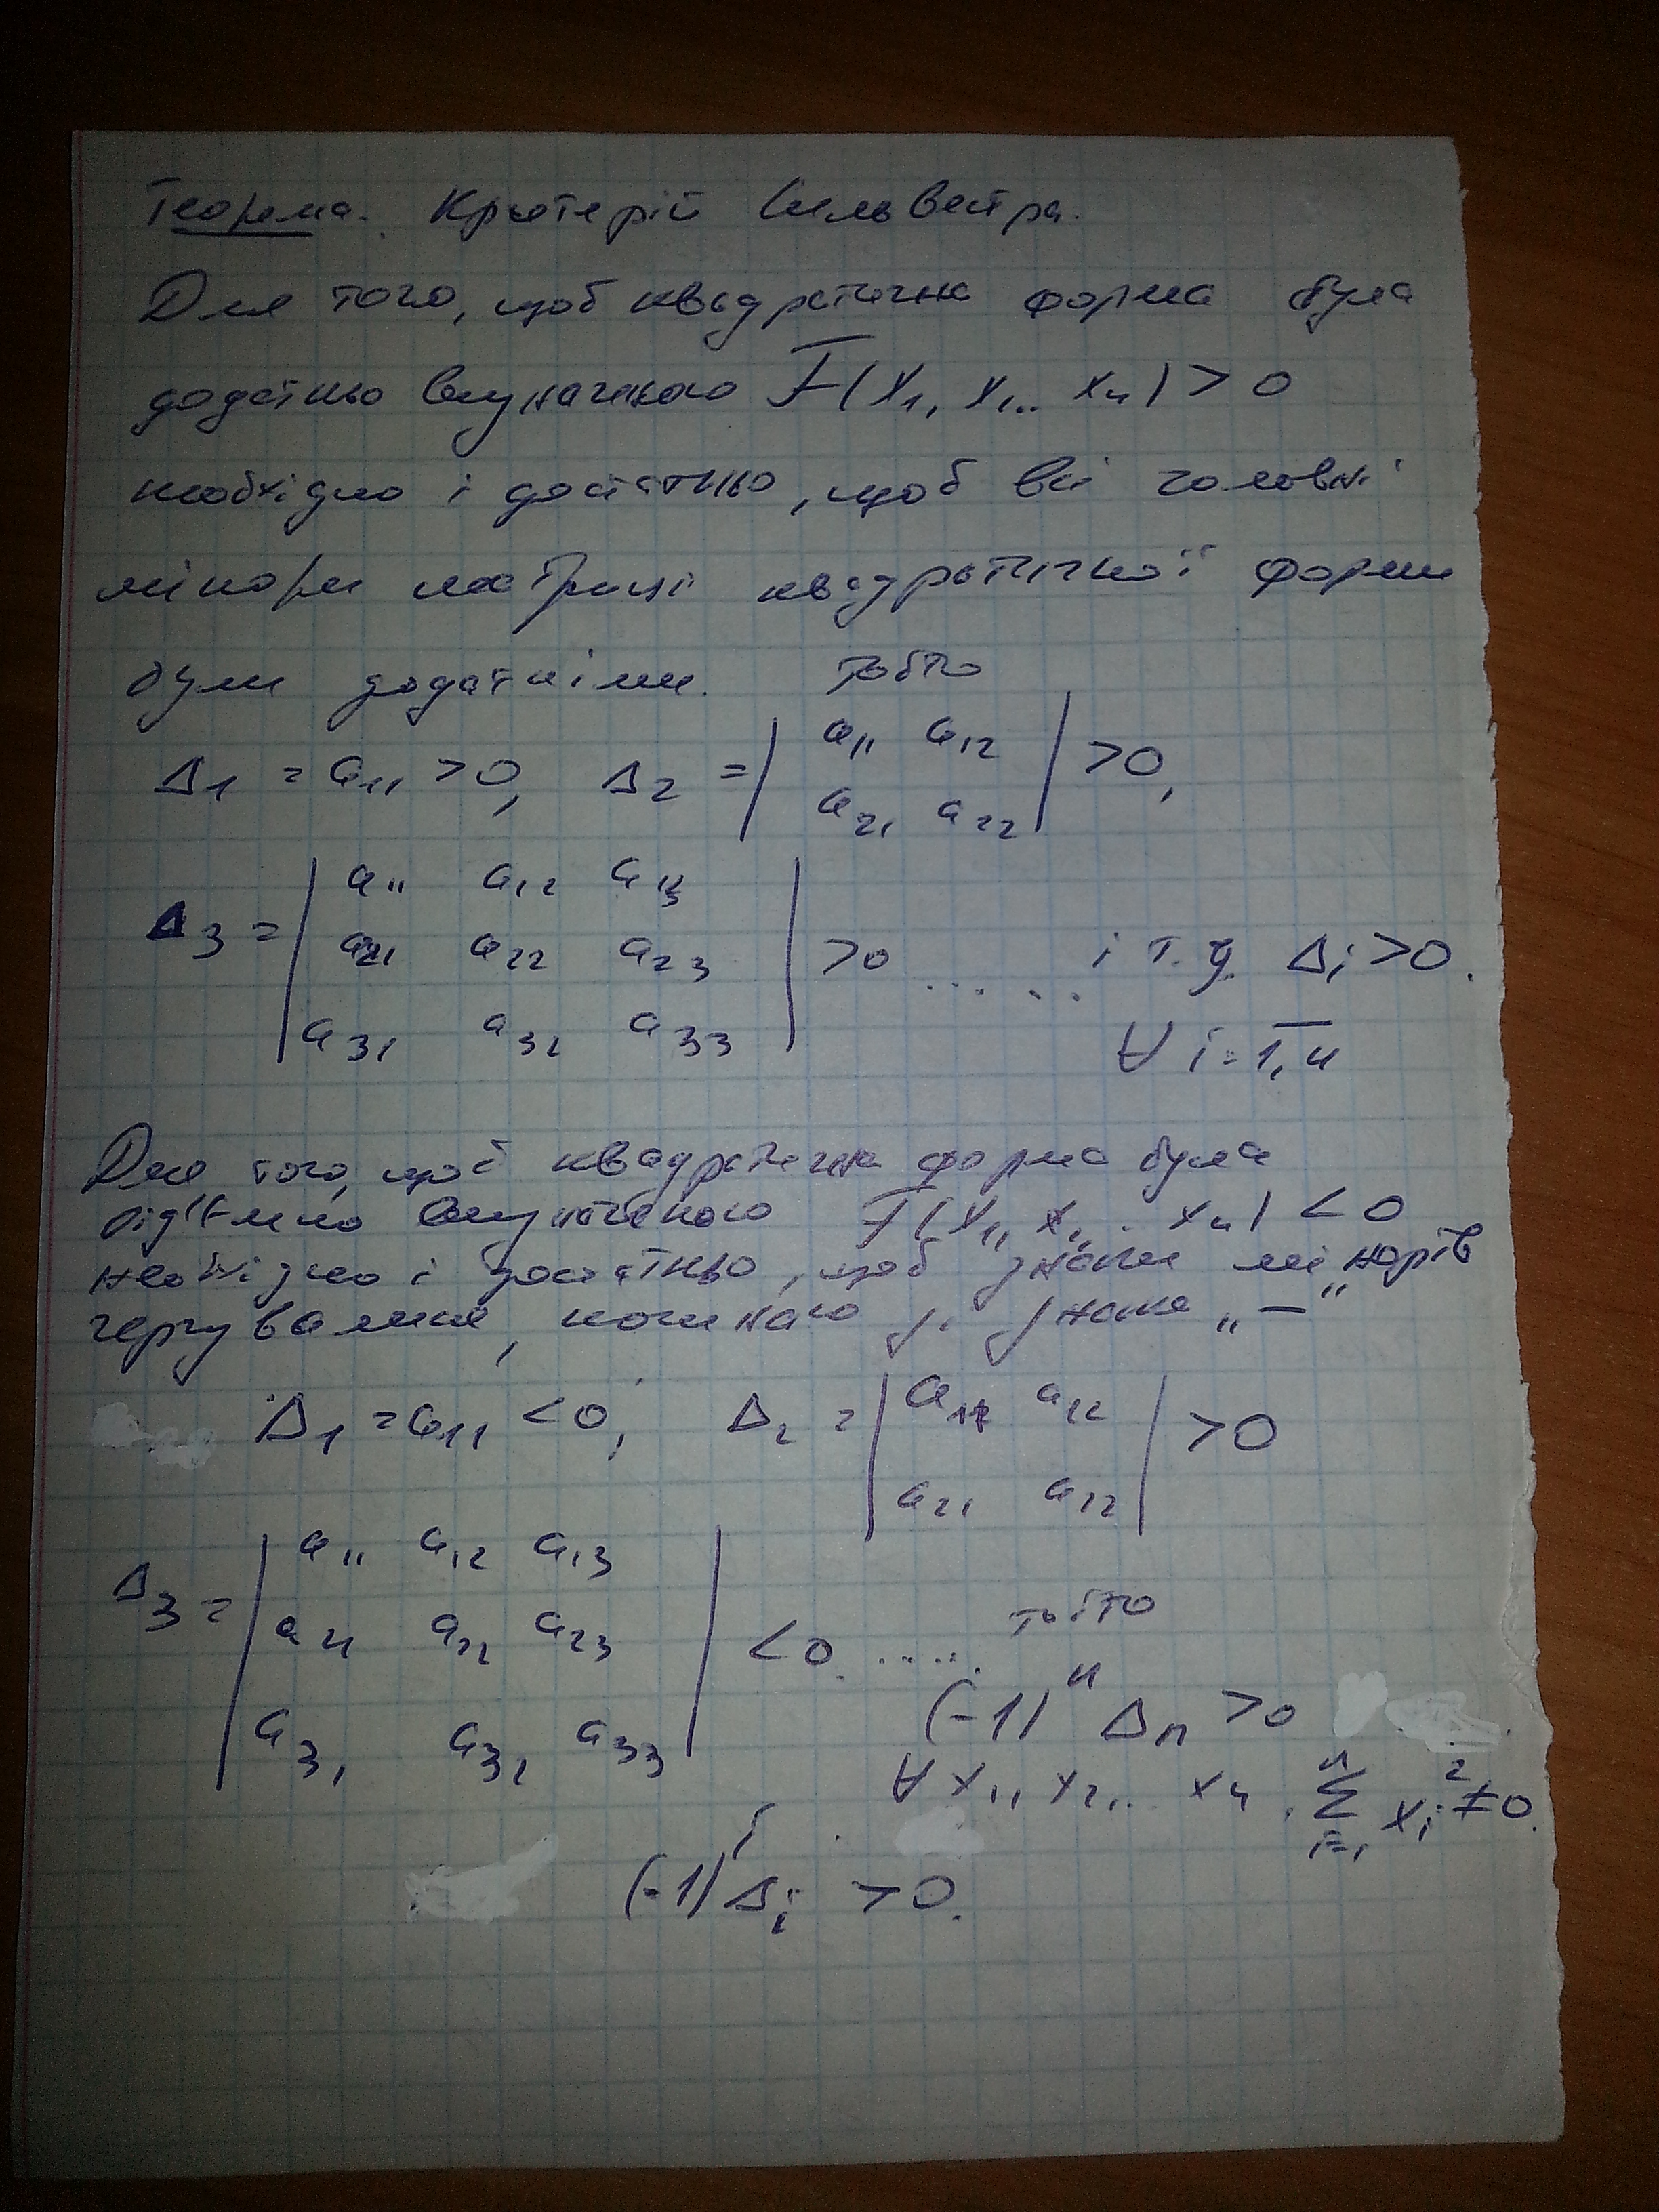 Теорема. Критерій Сильвестра.
Для того, щоб квадратична форма була
додатньо визначеною F(x₁, x₁.. xₙ) > 0
необхідно і достатньо, щоб всі головні
мінори матриці квадратичної форми
були додатніми. тобто
Δ₁ = a₁₁ > 0, Δ₂ = | a₁₁ a₁₂ | > 0,
a₂₁ a₂₂
a₁₁ a₁₂ a₁₃
Δ₃ = | a₂₁ a₂₂ a₂₃ | > 0 ..... і т.д. Δᵢ > 0.
a₃₁ a₃₂ a₃₃ ∀ i = 1, n
Для того, щоб квадратична форма була
від'ємно визначеною F(x₁, x,, .. xₙ) < 0
необхідно і достатньо, щоб знаки мінорів
чергувалися, починаючи зі знака „—"
Δ₁ = a₁₁ < 0, Δ₂ = | a₁₁ a₁₂ | > 0
a₂₁ a₁₂
a₁₁ a₁₂ a₁₃
Δ₃ = | a₂₁ a₂₂ a₂₃ | < 0. ..... тобто
a₃₁ a₃₂ a₃₃ (-1)ⁿ Δₙ > 0
∀ x₁, x₂, .. xₙ, ∑ⁿᵢ₌₁ xᵢ² ≠ 0.
(-1)ⁱ Δᵢ > 0.